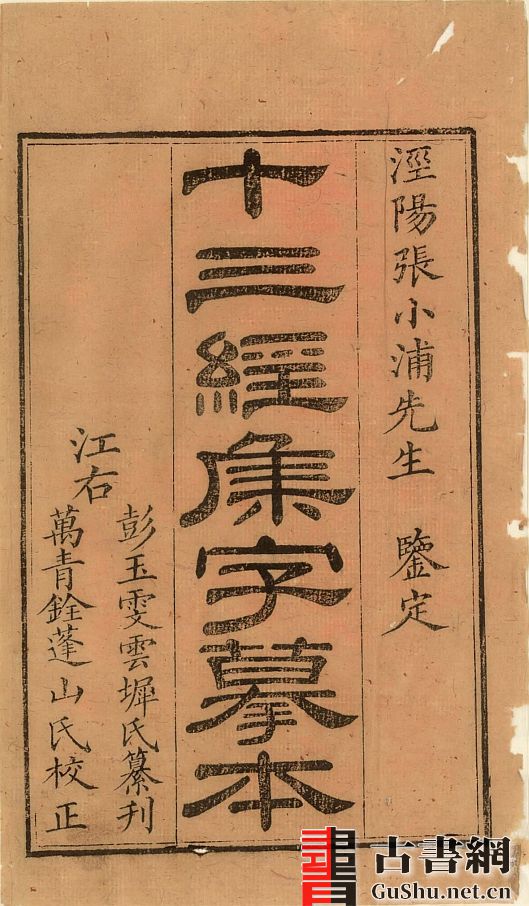 涇陽張小浦先生 鑒定
十三經集字摹本
江右
彭玉雯雲墀氏纂刊
萬青銓蓬山氏校正
古書網
GuShu.net.cn